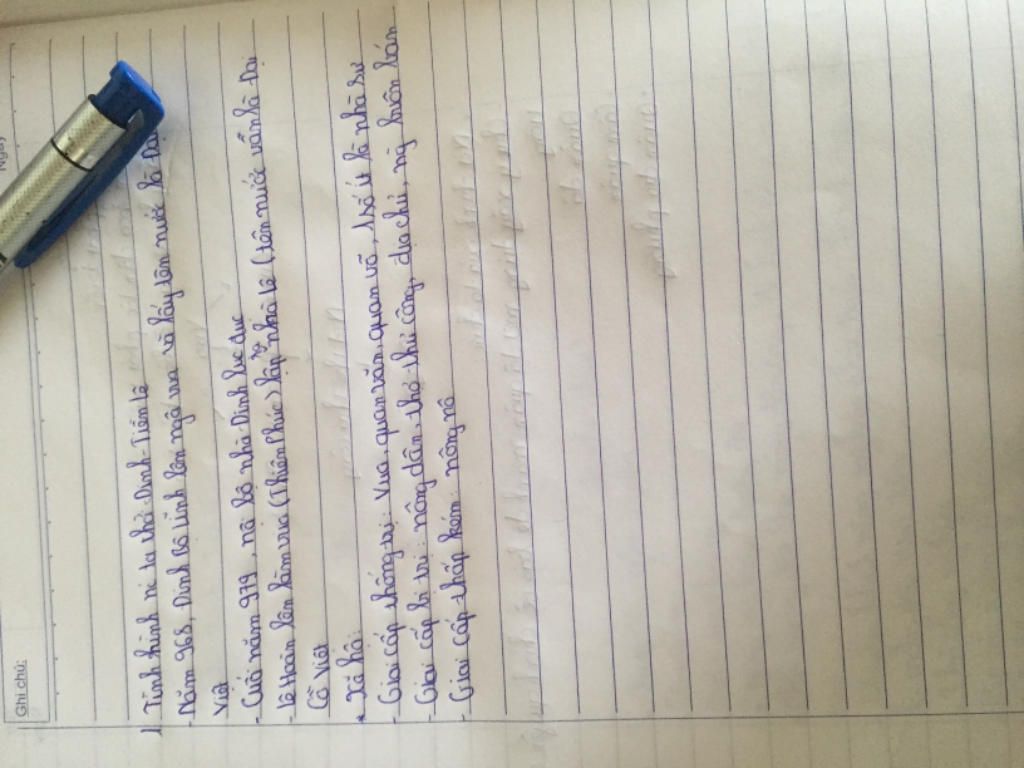 Ghi chú:
1 Tình hình nước ta thời Đinh - Tiền Lê
- Năm 968, Đinh Bộ Lĩnh lên ngôi vua và lấy tên nước là Đại
Việt
- Cuối năm 979, nội bộ nhà Đinh lục đục
- Lê Hoàn lên làm vua (Thiên Phúc) lập nhà Lê (tên nước vẫn là Đại
Cồ Việt
* Xã hội:
- Giai cấp thống trị: Vua, quan văn, quan võ, 1 số ít là nhà sư
- Giai cấp bị trị: nông dân, thợ thủ công, địa chủ, buôn bán
- Giai cấp thấp kém: nông nô